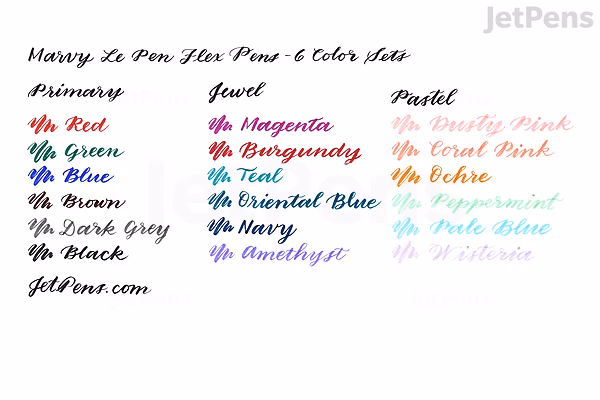 JetPens
Marvy Le Pen Flex Pens - 6 Color Sets
Primary
Red
Green
Blue
Brown
Dark Grey
Black
Jewel
Magenta
Burgundy
Teal
Oriental Blue
Navy
Amethyst
Pastel
Dusty Pink
Coral Pink
Ochre
Peppermint
Pale Blue
Wisteria
JetPens.com